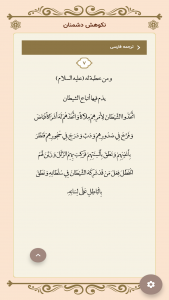 نکوهش دشمنان
ترجمه فارسی
۷
ومن خطبة له (عليه السلام)
يذم فيها أتباع الشيطان
اتَّخَذُوا الشَّيْطَانَ لِأَمْرِهِمْ مِلَاكاً وَاتَّخَذَهُمْ لَهُ أَشْرَاكاً فَبَاضَ
وَفَرَّخَ فِي صُدُورِهِمْ وَدَبَّ وَدَرَجَ فِي حُجُورِهِمْ فَنَظَرَ
بِأَعْيُنِهِمْ وَنَطَقَ بِأَلْسِنَتِهِمْ فَرَكِبَ بِهِمُ الزَّلَلَ وَزَيَّنَ لَهُمُ
الْخَطَلَ فِعْلَ مَنْ قَدْ شَرِكَهُ الشَّيْطَانُ فِي سُلْطَانِهِ وَنَطَقَ
بِالْبَاطِلِ عَلَى لِسَانِهِ.